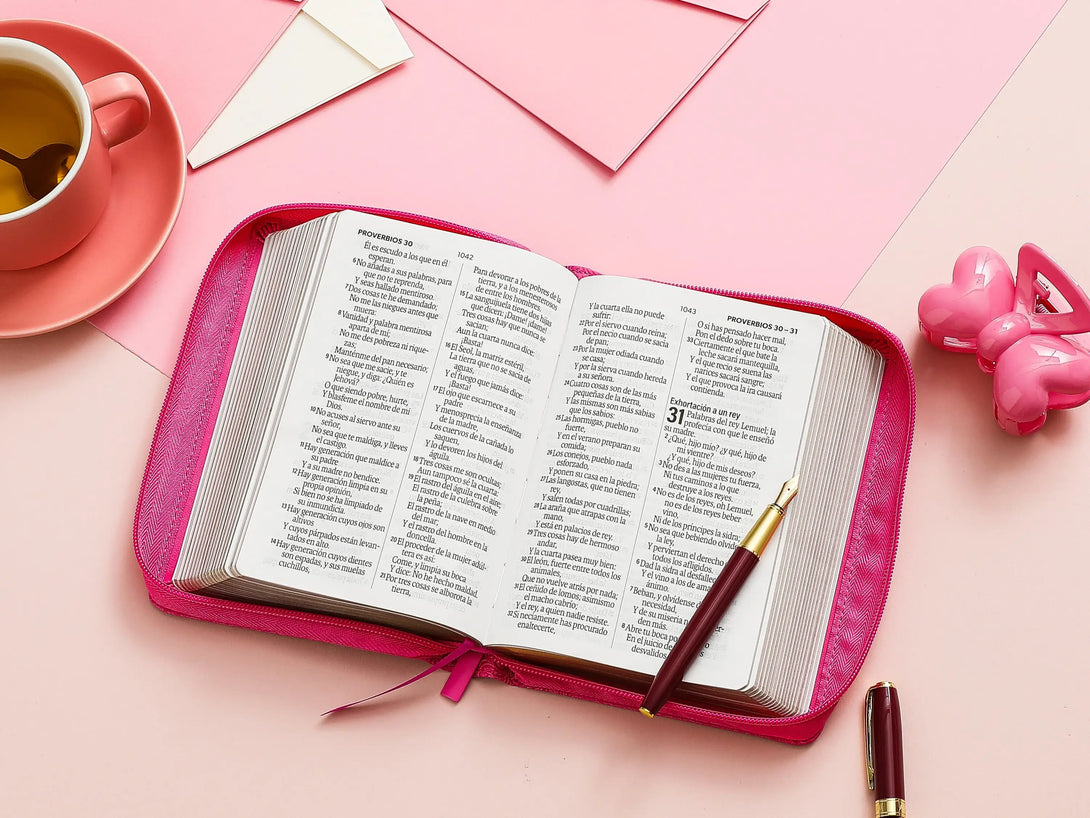 PROVERBIOS 30
1042
Él es escudo a los que en él
esperan.
6 No añadas a sus palabras, para
que no te reprenda,
Y seas hallado mentiroso.
7 Dos cosas te he demandado;
No me las niegues antes que
muera:
8 Vanidad y palabra mentirosa
aparta de mí;
No me des pobreza ni rique-
zas;
Manténme del pan necesario;
9 No sea que me sacie, y te
niegue, y diga: ¿Quién es
Jehová?
O que siendo pobre, hurte,
Y blasfeme el nombre de mi
Dios.
10 No acuses al siervo ante su
señor,
No sea que te maldiga, y lleves
el castigo.
11 Hay generación que maldice a
su padre
Y a su madre no bendice.
12 Hay generación limpia en su
propia opinión,
Si bien no se ha limpiado de
su inmundicia.
13 Hay generación cuyos ojos son
altivos
Y cuyos párpados están levan-
tados en alto.
14 Hay generación cuyos dientes
son espadas, y sus muelas
cuchillos,
Para devorar a los pobres de la
tierra, y a los menesterosos
de entre los hombres.
15 La sanguijuela tiene dos hijas
que dicen: ¡Dame! ¡dame!
Tres cosas hay que nunca se
sacian;
Aun la cuarta nunca dice:
¡Basta!
16 El Seol, la matriz estéril,
La tierra que no se sacia de
aguas,
Y el fuego que jamás dice:
¡Basta!
17 El ojo que escarnece a su
padre
Y menosprecia la enseñanza
de la madre,
Los cuervos de la cañada lo
saquen,
Y lo devoren los hijos del
águila.
18 Tres cosas me son ocultas;
Aun tampoco sé la cuarta:
19 El rastro del águila en el aire;
El rastro de la culebra sobre
la peña;
El rastro de la nave en medio
del mar;
Y el rastro del hombre en la
doncella.
20 El proceder de la mujer adúl-
tera es así:
Come, y limpia su boca
Y dice: No he hecho maldad.
21 Por tres cosas se alborota la
tierra,
1043
PROVERBIOS 30 – 31
Y la cuarta ella no puede
sufrir:
22 Por el siervo cuando reina;
Por el necio cuando se sacia
de pan;
23 Por la mujer odiada cuando
se casa;
Y por la sierva cuando hereda
a su señora.
24 Cuatro cosas son de las más
pequeñas de la tierra,
Y las mismas son más sabias
que los sabios:
25 Las hormigas, pueblo no
fuerte,
Y en el verano preparan su
comida;
26 Los conejos, pueblo nada
esforzado,
Y ponen su casa en la piedra;
27 Las langostas, que no tienen
rey,
Y salen todas por cuadrillas;
28 La araña que atrapas con la
mano,
Y está en palacios de rey.
29 Tres cosas hay de hermoso
andar,
Y la cuarta pasea muy bien:
30 El león, fuerte entre todos los
animales,
Que no vuelve atrás por nada;
31 El ceñido de lomos; asimismo
el macho cabrío;
Y el rey, a quien nadie resiste.
32 Si neciamente has procurado
enaltecerte,
O si has pensado hacer mal,
Pon el dedo sobre tu boca.
33 Ciertamente el que bate la
leche sacará mantequilla,
Y el que recio se suena las
narices sacará sangre;
Y el que provoca la ira causará
contienda.
Exhortación a un rey
31 Palabras del rey Lemuel; la
profecía con que le enseñó
su madre.
2 ¿Qué, hijo mío? ¿y qué, hijo de
mi vientre?
¿Y qué, hijo de mis deseos?
3 No des a las mujeres tu fuerza,
Ni tus caminos a lo que
destruye a los reyes.
4 No es de los reyes, oh Lemuel,
no es de los reyes beber
vino,
Ni de los príncipes la sidra;
5 No sea que bebiendo olviden
la ley,
Y perviertan el derecho
todos los afligidos.
6 Dad la sidra al desfalle
Y el vino a los de amar
ánimo.
7 Beban, y olvídense
necesidad,
Y de su miseria n
den más.
8 Abre tu boca po
En el juicio de
desvalidos